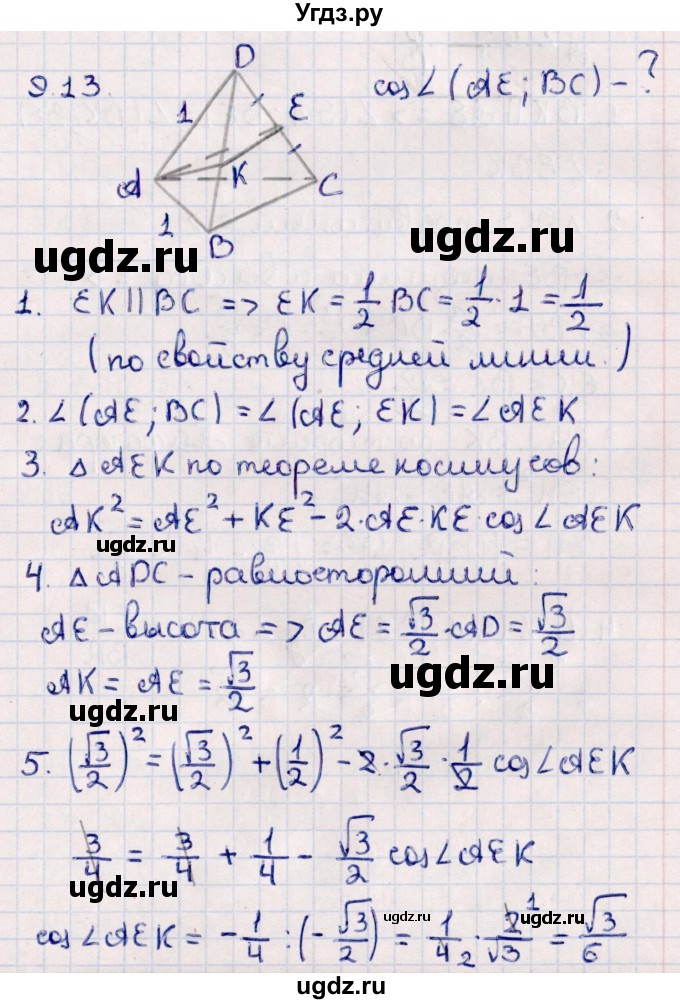 Угдз.ру
9.13.
cos∠(AE; BC) - ?
D
1
E
A
K
C
1
B
ugdz.ru
ugdz.ru
1. EK || BC => EK = 1/2 BC = 1/2 · 1 = 1/2
(по свойству средней линии.)
2. ∠(AE; BC) = ∠(AE; EK) = ∠AEK
3. △AEK по теореме косинусов:
AK² = AE² + KE² - 2·AE·KE·cos∠AEK
ugdz.ru
4. △ADC - равносторонний:
AE - высота => AE = √3/2 · AD = √3/2
ugdz.ru
AK = AE = √3/2
ugdz.ru
5. (√3/2)² = (√3/2)² + (1/2)² - 2·√3/2·1/2 cos∠AEK
3/4 = 3/4 + 1/4 - √3/2 cos∠AEK
ugdz.ru
ugdz.ru
cos∠AEK = -1/4 : (-√3/2) = 1/4₂ · 2¹/√3 = √3/6
ugdz.ru
Угдз.ру